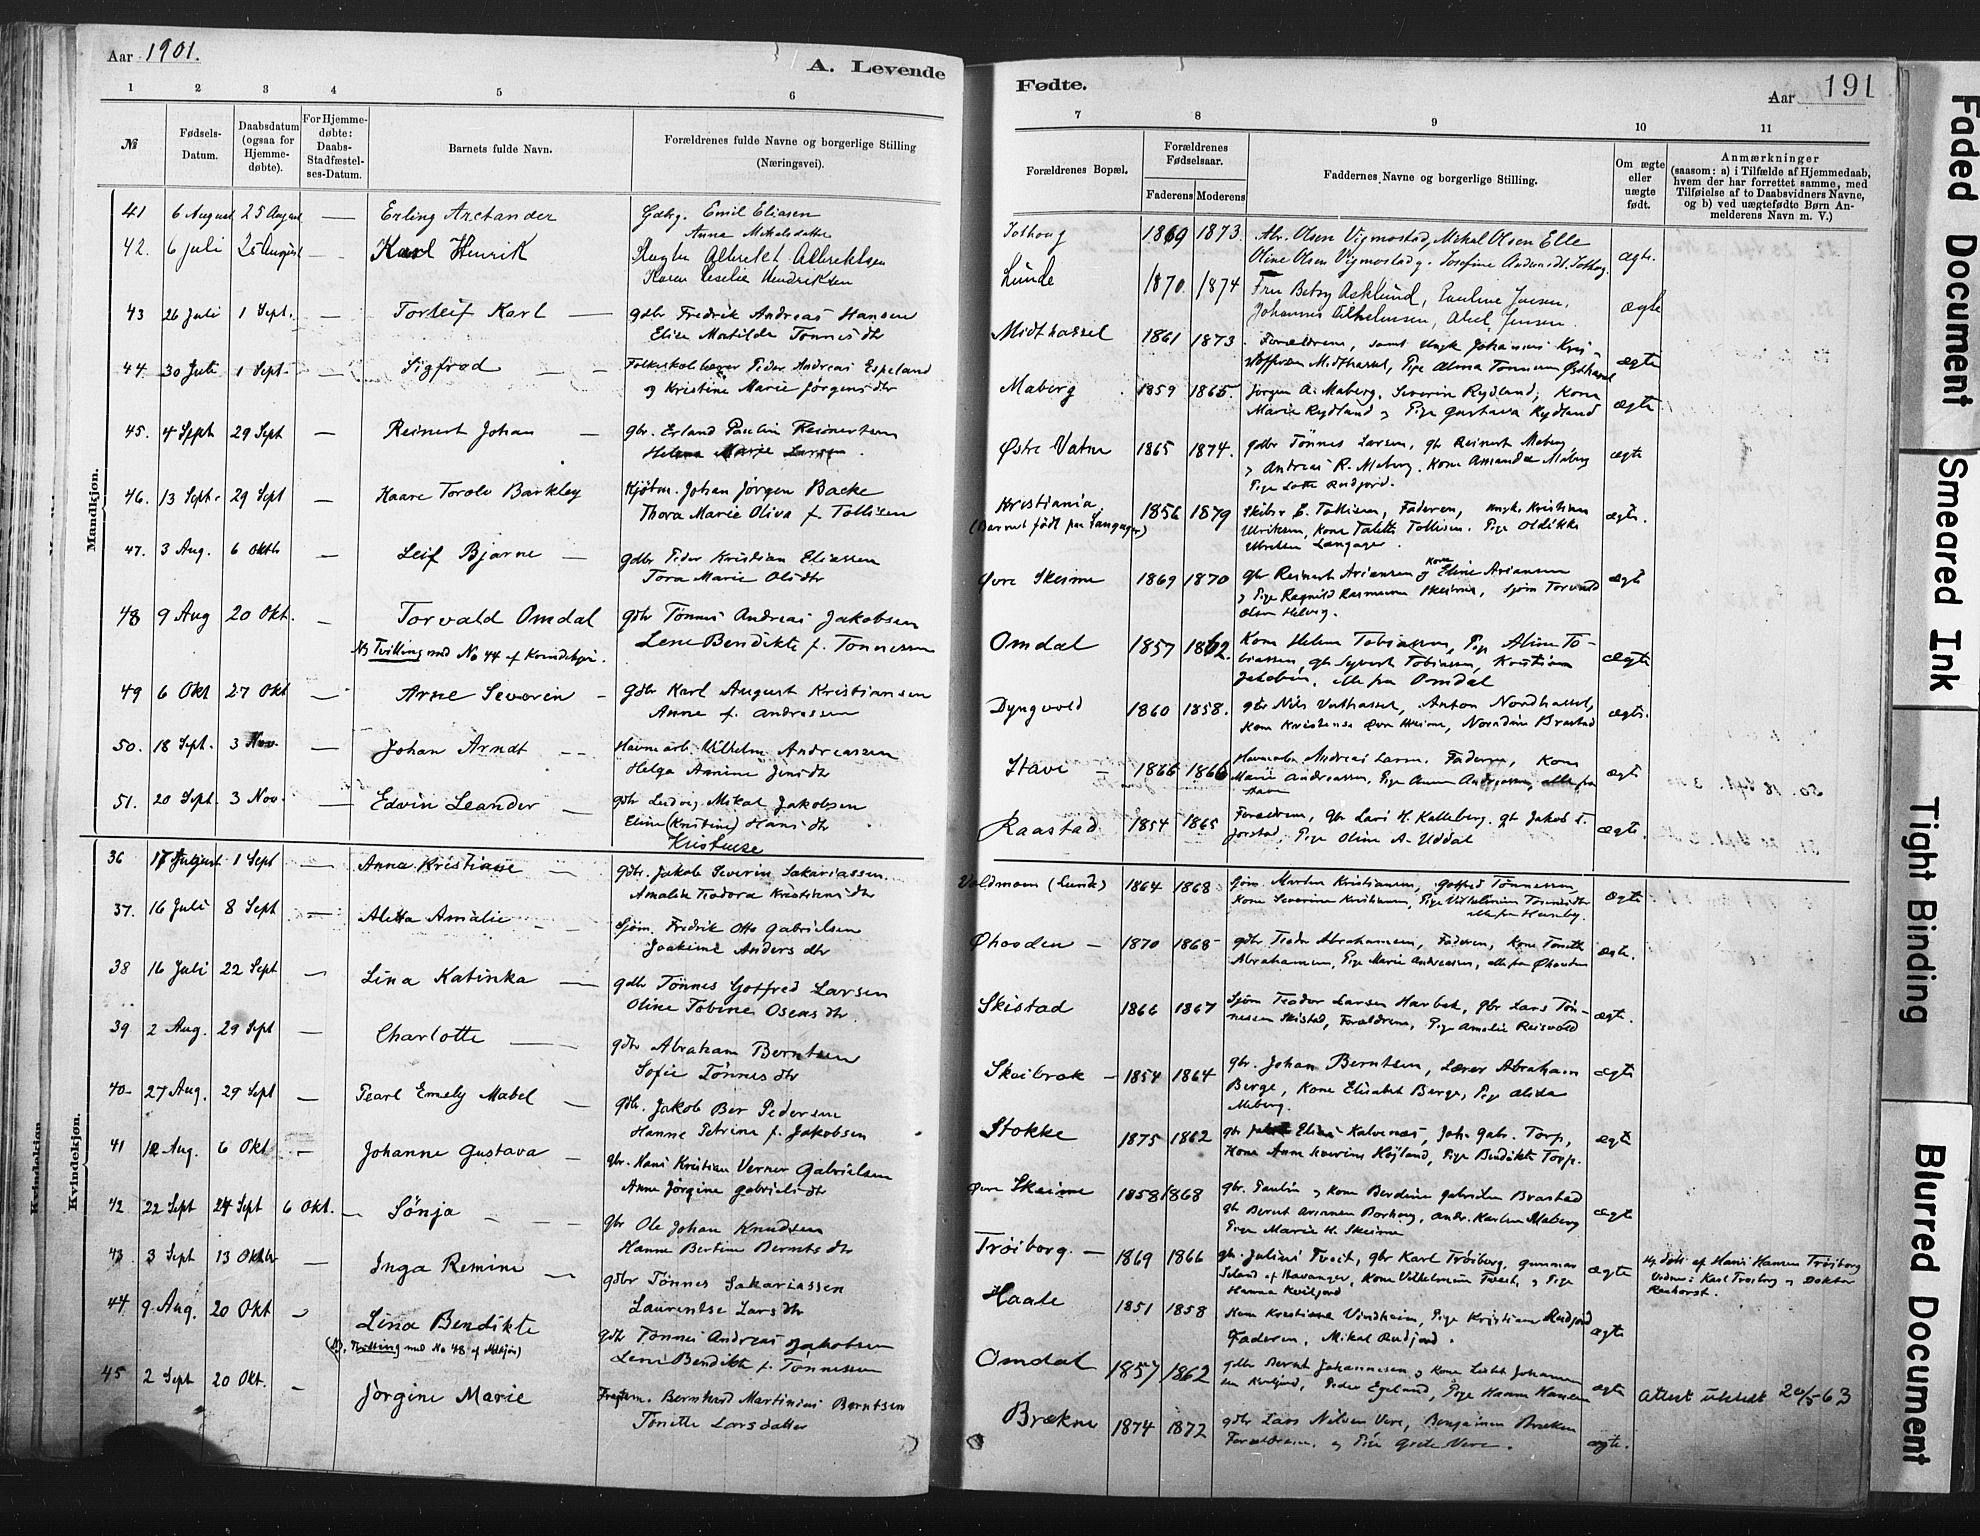 Aar 1901.
A. Levende
1 2 3 4 5 6
№
Fødsels-Datum.
Daabsdatum (ogsaa for Hjemmedøbte).
For Hjemmedøbte: Daabs-Stadfæstelses-Datum.
Barnets fulde Navn.
Forældrenes fulde Navne og borgerlige Stilling (Næringsvei).
Mandkjøn.
41 6 August 25 August — Erling Arctander Gdbg. Emil Eliasen
Anna Mikalsdatter
42. 6 juli 25 August — Karl Henrik Albrekt Albrektsen
Karen Hendriksen
43 26 Juli 1 Sept. — Torleif Karl — gdbr Fredrik Andreas Hansen
Elise Matilde Tønnesdtr
44. 30 Juli 1 Sept. — Sigfrod — Folkeskolelærer Peder Andreas Espeland
og Kristine Marie Jørgensdtr
45. 4 Sept 29 Sept — Reinert Johan — gbr. Erland Paulin Reinertsen
Helene Marie Larsen
46. 13 Sept. 29 Sept — Kaare Torolv Barkley Kjøbm. Johan Jørgen Backe
Thora Marie Oliva f. Tollisen
47. 3 Aug. 6 Oktb — Leif Bjarne — gdbr Peder Kristian Eliassen
Tora Marie Olsdtr
48 9 Aug 20 Okt. — Torvald Omdal gdbr Tønnes Andreas Jakobsen
NB Tvilling med No 44 af Kvindekjøn. Lene Bendikte f. Tønnessen
49 6 Okt 27 Okt — Arne Severin — gdbr Karl August Kristiansen
Anne f. Andreassen
50. 18 Sept. 3 Nov. — Johan Arndt — Havnearb. Vilhelm Andreassen
Helga Amine Jensdtr
51. 20 Sept. 3 Nov. — Edvin Leander — gdbr Ludvig Mikal Jakobsen
Eline (Kristine) Hansdtr
Kristense
Kvindekjøn.
Kvindekjøn.
36 17 August 1 Sept — Anna Kristiane — gdbr. Jakob Severin Sakariassen.
Amalie Teodora Kristiansdtr
37. 16 Juli 8 Sept — Aletta Amalie — Sjøm. Fredrik Otto Gabrielsen
Joakime Andersdtr
38 16 Juli 22 Sept — Lina Katinka — gdbr Tønnes Gotfred Larsen
Oline Tobine Osensdtr
39 2 Aug. 29 Sept — Charlotte — gdbr Abraham Berntsen
Sofie Tønnesdtr
40 27 Aug. 29 Sept — Pearl Emely Mabel — gdbr. Jakob Ber Pedersen
Hanne Petrine f. Jakobsen
41 12 Aug. 6 Okt — Johanne Gustava — gbr. Hans Kristian Verner Gabrielsen
Anne Jørgine Gabrielsdtr
42 22 Sept 24 Sept 6 Okt. — Sønja — gbr Ole Johan Knudsen
Hanne Bertine Berntsdtr
43 3 Sept 13 Oktbr — Inga Remine — gdbr Tønnes Sakariassen
Laurentse Larsdtr
44 9 Aug. 20 Okt — Lina Bendikte gdbr Tønnes Andreas Jakobsen
(NB. Tvilling med No 48 af Mkjøn) Lene Bendikte f. Tønnessen
45 2 Sept 20 Okt. — Jørgine Marie Bernhard Martinius Berntsen
Tonette Larsdatter
Fødte.
Aar 191
7 8 9 10 11
Forældrenes Bopæl.
Forældrenes Fødselsaar.
Faderens Moderens
Faddernes Navne og borgerlige Stilling.
Om ægte eller uægte født.
Anmærkninger
(saasom: a) i Tilfælde af Hjemmedaab, hvem der har forrettet samme, med Tilføielse af to Daabsvidners Navne, og b) ved uægtefødte Børn Anmelderens Navn m. V.)
1869 1873. Abr. Olsen Vigmostad, Mikal Olsen Elle
Oline Olsen Vigmostad ægte.
Lunde 1870. 1874 Fru Betsy Asklund, Pauline Jensen,
Johannes Vilhelmsen, Abel Jensen. ægte
Midthassel 1861 1873. Forældrene, samt Ungk Johannes Kris-
toffersen Midthassel, Pige Alma Tønnessen Østhassel ægte
Maberg 1859 1865. Jørgen A. Maberg, Severin Rydland, Kone
Marie Rydland og Pige Gustava Rydland ægte
Østre Vatne 1865 1874. gdbr Tønnes Larsen, gbr Reinert Maberg,
og Andreas R. Maberg. Kone Amanda Maberg
Pige Lotte Rudjord. ægte
Kristiania (Barnet født paa Langager) 1856 1879 Skibsr E. Tollisen, Faderen, ungk. Kristian
Ulriksen, Kone Talette Tollisen. Pige Oldikke
Ulriksen Langager. ægte.
Øvre Skeime 1869 1870 gbr Reinert Ariansen og Kone Eline Ariansen
og Pige Ragnild Rasmussen Skeime, Sjøm Torvald
Olsen Helvig. ægte
Omdal 1857 1862. Kone Helene Tobiassen, Pige Aline To-
biassen, gbr Syvert Tobiassen, Kristian
Jakobsen, alle fra Omdal ægte
Dyngvold 1860 1858. gbr Nils Vesthassel, Anton Nordhassel,
Kone Kristense Øvre Skeime, Brastad ægte.
Stave — 1866 1866 Havnearb. Andreas Larsen, Faderen, Kone
Marie Andreassen, Pige Anna Andreassen, alle fra
Stave ægte
Raastad 1854 1865 Forældrene, Gbr Lars H. Kalleberg. gbr Jakob T.
Jørstad, Pige Oline A. Uddal ægte.
Voldmoen (Lunde) 1864 1868 Sjøm. Martin Kristiansen, Gotfred Tønnessen,
Kone Severine Kristiansen, Pige Vilhelmine Tønnesdtr
alle fra ægte
Øhooden — 1870 1868 gdbr Teodor Abrahamsen, Faderen, Kone Tonette
Abrahamsen, Pige Marie Andreassen, alle fra Øhooden ægte.
Skistad 1866 1867 Sjøm Teodor Larsen Haubek, Gbr Lars Tøn-
nessen Skistad, Forældrene, Pige Amalie Reisvold ægte.
Skeibrok — 1854 1864 gbr. Johan Berntsen, Lærer Abraham
Berge, Kone Elisabet Berge, Pige Alida
Maberg. ægte
Stokke 1875 1862 gbr Elias Kalvenes, Joh. Gabr. Torp,
Kone Anne Severine Højland, Pige Bendikte Torp. ægte
Øvre Skeime 1858 1868 gbr. Paulin og Kone Berdine Gabrielsen Brastad
gbr Bernt Ariansen Borhaug, Andr. Karlsen Maberg
Pige Marie H. Skeime ægte
Trøiborg. — 1869 1866 gbr. Julius Tveit, gbr Karl Trøiborg, Gunnar
af Stavanger, Kone Vilhelmine Tveit, og Pige
Hanna Kviljord ægte Hj. døbt af Hans Hansen Trøiborg
Vidner: Karl Trøiborg og Doktor
Haale 1851 1858 Kone Kristiane Vindheim, Pige Kristiane Rudjord
Faderen, Mikal Rudjord. ægte
Omdal 1857 1862 gdbr Bernt Johannesen og Kone Johannes-
sen Kviljord, Peder Egeland, Pige Hanna Hansen ægte Attest utstedt 20/5-63
Brækne 1874 1872 gdbr Lars Nilsen Vere, Benjamin Bræknes
Forældrene, og Pige Grete Vere. ægte.
Faded Document
Smeared Ink
Tight Binding
Blurred Document